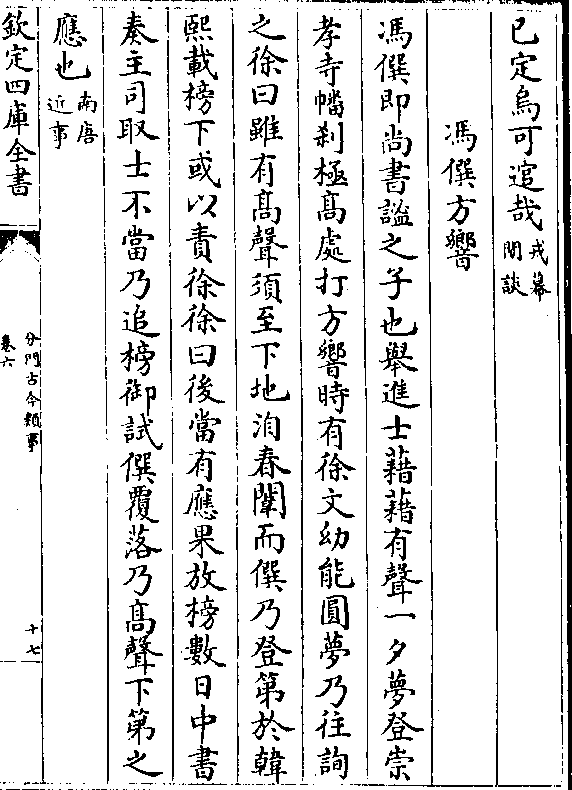 已定烏可逭哉戎幕閒談
馮僎方響
馮僎即尚書謐之子也舉進士藉藉有聲一夕夢登崇
孝寺幡刹極髙處打方響時有徐文幼能圓夢乃往詢
之徐曰雖有髙聲須至下地洎春闈而僎乃登第於韓
熙載榜下或以責徐徐曰後當有應果放榜數日中書
奏主司取士不當乃追榜御試僎覆落乃髙聲下第之
應也南唐近事
欽定四庫全書
分門古今類事
卷六
十七